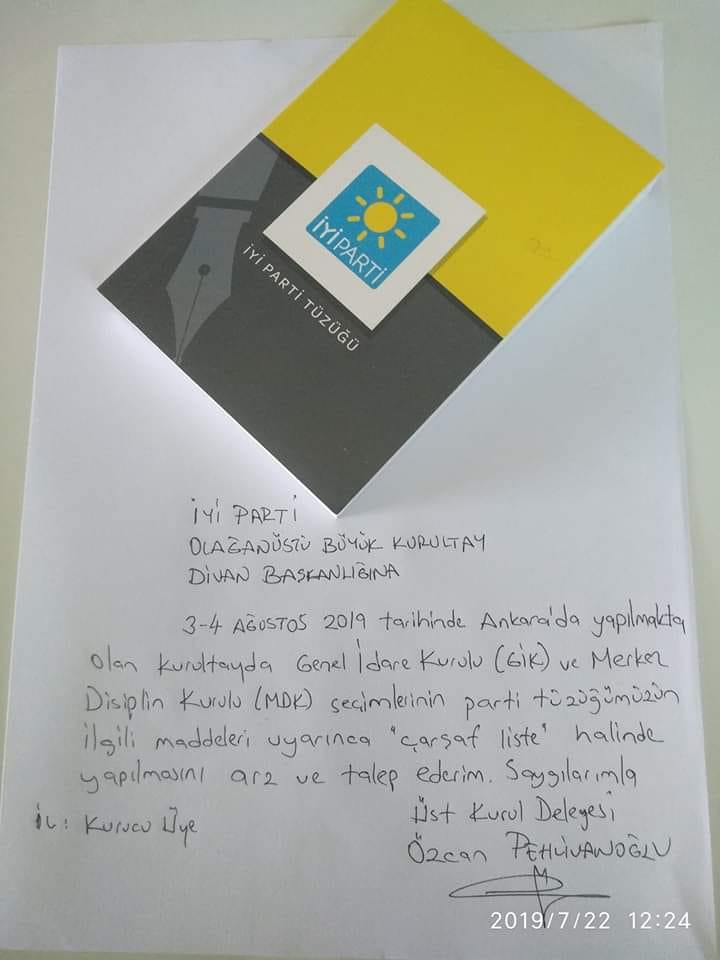 İYİ PARTİ
İYİ PARTİ TÜZÜĞÜ
İYİ PARTİ
OLAĞANÜSTÜ BÜYÜK KURULTAY
DİVAN BAŞKANLIĞINA
3-4 AĞUSTOS 2019 tarihinde Ankara'da yapılmakta
olan kurultayda Genel İdare Kurulu (GİK) ve Merkez
Disiplin Kurulu (MDK) seçimlerinin parti tüzüğümüzün
ilgili maddeleri uyarınca "çarşaf liste" halinde
yapılmasını arz ve talep ederim. Saygılarımla
Üst Kurul Delegesi
İL: Kurucu Üye
Özcan PEHLİVANOĞLU
2019/7/22 12:24